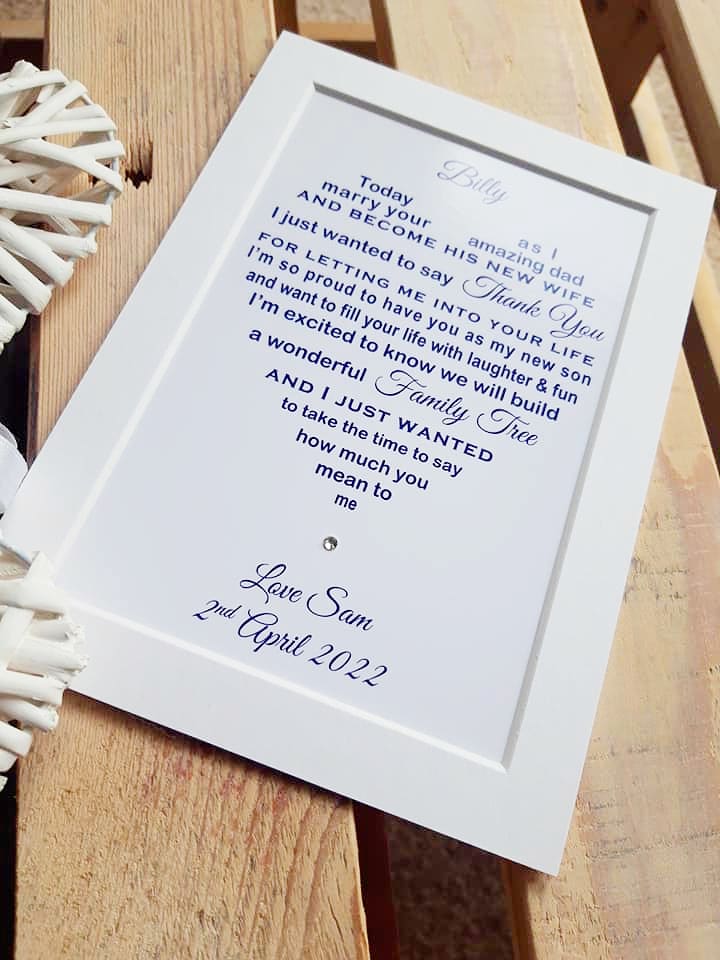 Billy
Today as I
marry your amazing dad
AND BECOME HIS NEW WIFE
I just wanted to say Thank You
FOR LETTING ME INTO YOUR LIFE
I'm so proud to have you as my new son
and want to fill your life with laughter & fun
I'm excited to know we will build
a wonderful Family Tree
AND I JUST WANTED
to take the time to say
how much you
mean to
me
Love Sam
2nd April 2022